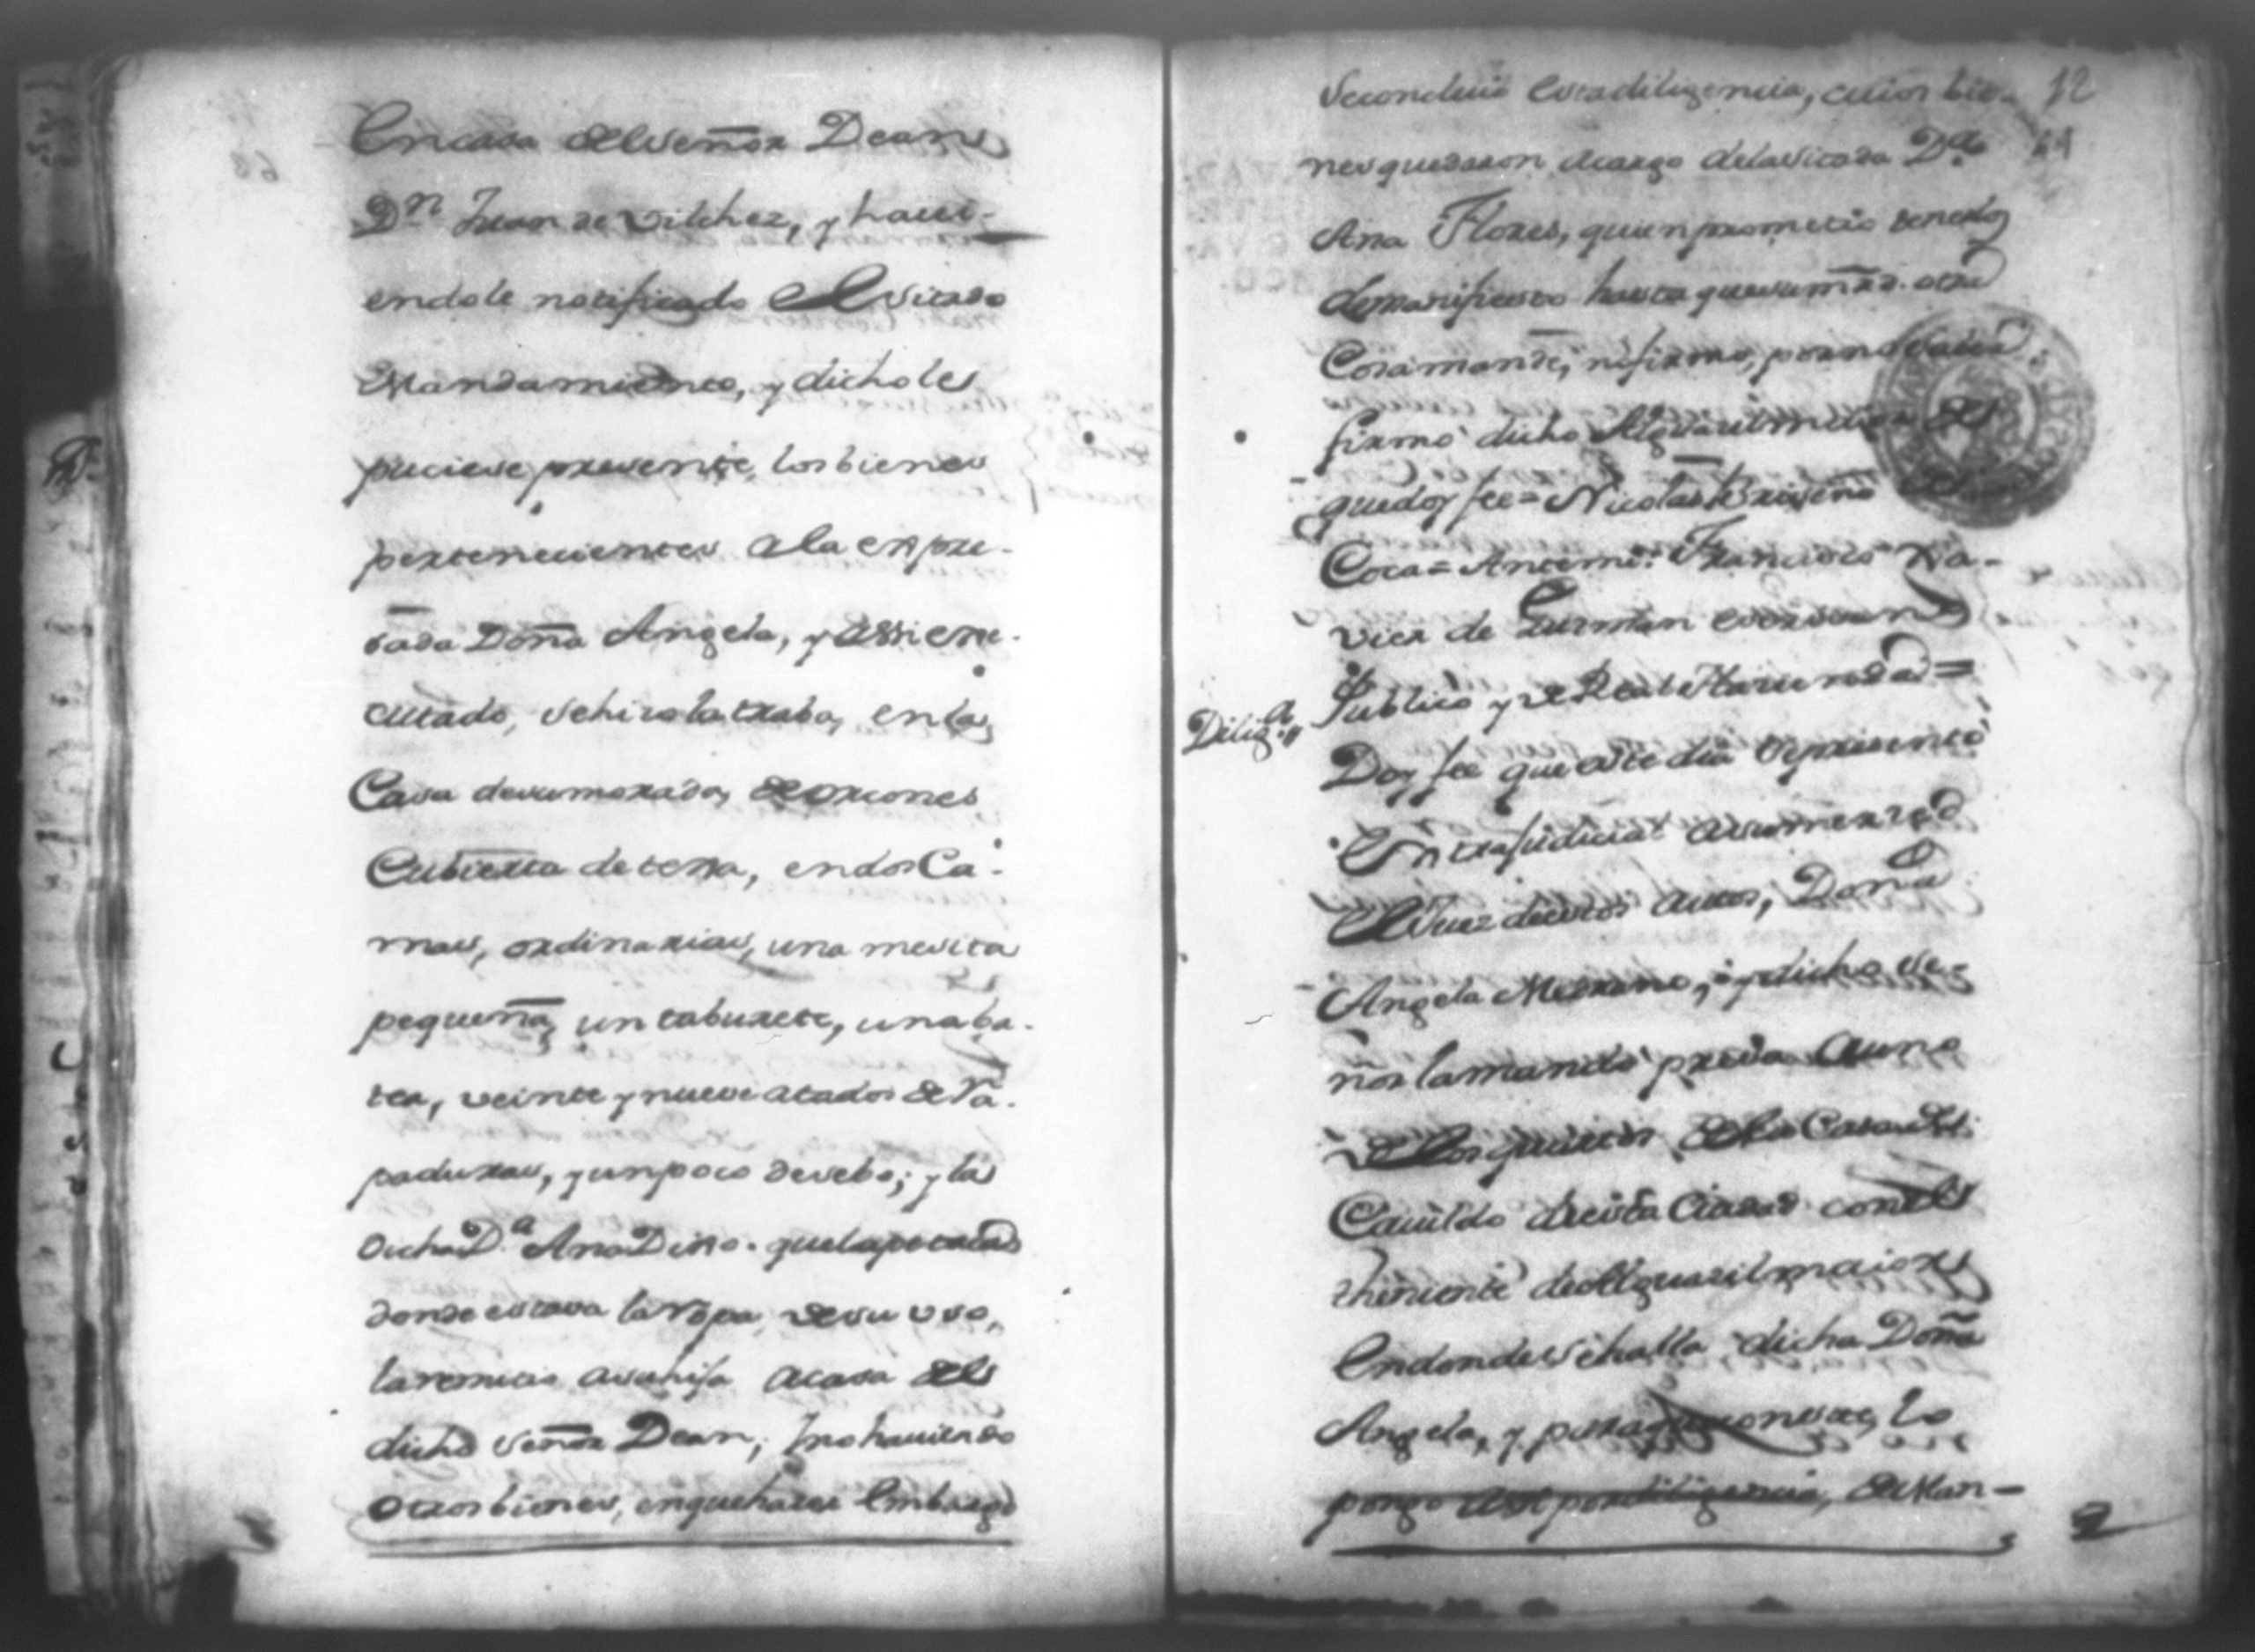 En casa del señor Dean
Dn Juan de Vilchez, y havi-
endole notificado el citado
Mandamiento, y dichole
puciese presente, los bienes
pertenecientes a la expre-
sada Doña Angela, y assi exe-
cutado, se hizo la traba, en la
Casa de su morada, de orcones
Cubierta de texa, en dos Ca-
mas, ordinarias, una mesita
pequeña, un taburete, una ba-
tea, veinte y nueve atados de Ra-
paduras, y un poco de sebo; y la
dicha Da Ana Dixo. que la petaca
donde estava la ropa de su uso,
la remitio a su hija a casa del
dicho señor Dean; y no haviendo
otros bienes, en que hacer Embargo
se concluio esta diligencia, cuios bie- 12
nes quedaron a cargo de la citada Da 69
Ana Flores, quien prometio tenerlos
de manifiesto hasta que su mrd. otra
Cosa mande, no firmo, por no saver
firmo dicho Alguacil de
que doy fee = Nicolas Briseño
Coca = Antemi: Francisco Xa-
vier de Guzman escrivano
Publico y de Real Hacienda =
Diliga.
Doy fee que este dia se presento
Extrajudicial a su merced
el Juez de estos autos, Doña
Angela Moreno, y dicho se-
ñor la mandó presa a uno
de los quartos de la Casa de
Cavildo de esta Ciudad con el
theniente de Alguacil maior
en donde se halla dicha Doña
Angela, y para que conste, lo
pongo assi por diligencia, de Man-